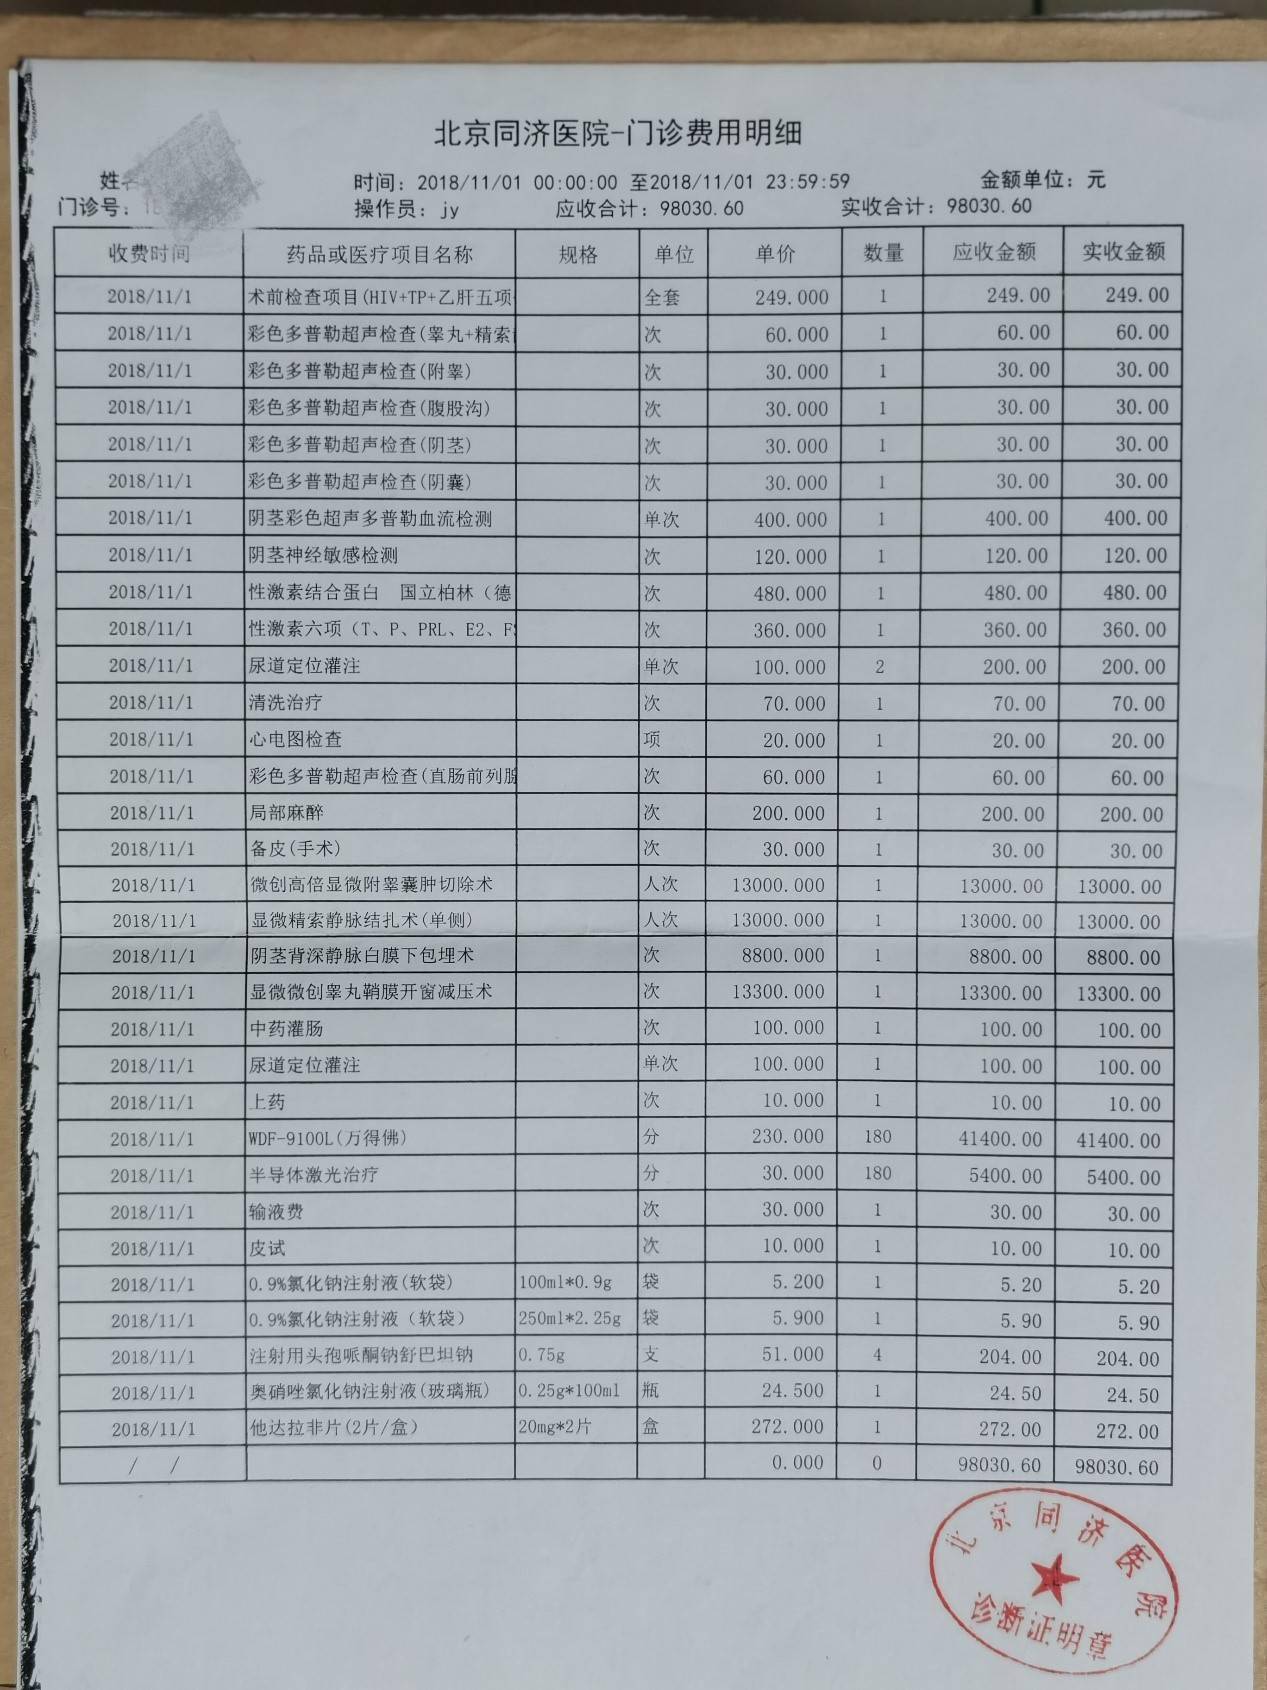 北京同济医院-门诊费用明细
姓 时间: 2018/11/01 00:00:00 至2018/11/01 23:59:59 金额单位: 元
门诊号: 操作员: jy 应收合计: 98030.60 实收合计: 98030.60
收费时间 药品或医疗项目名称 规格 单位 单价 数量 应收金额 实收金额
2018/11/1 术前检查项目(HIV+TP+乙肝五项 全套 249.000 1 249.00 249.00
2018/11/1 彩色多普勒超声检查(睾丸+精索 次 60.000 1 60.00 60.00
2018/11/1 彩色多普勒超声检查(附睾) 次 30.000 1 30.00 30.00
2018/11/1 彩色多普勒超声检查(腹股沟) 次 30.000 1 30.00 30.00
2018/11/1 彩色多普勒超声检查(阴茎) 次 30.000 1 30.00 30.00
2018/11/1 彩色多普勒超声检查(阴囊) 次 30.000 1 30.00 30.00
2018/11/1 阴茎彩色超声多普勒血流检测 单次 400.000 1 400.00 400.00
2018/11/1 阴茎神经敏感检测 次 120.000 1 120.00 120.00
2018/11/1 性激素结合蛋白 国立柏林（德 次 480.000 1 480.00 480.00
2018/11/1 性激素六项（T、P、PRL、E2、FS 次 360.000 1 360.00 360.00
2018/11/1 尿道定位灌注 单次 100.000 2 200.00 200.00
2018/11/1 清洗治疗 次 70.000 1 70.00 70.00
2018/11/1 心电图检查 项 20.000 1 20.00 20.00
2018/11/1 彩色多普勒超声检查(直肠前列腺 次 60.000 1 60.00 60.00
2018/11/1 局部麻醉 次 200.000 1 200.00 200.00
2018/11/1 备皮(手术) 次 30.000 1 30.00 30.00
2018/11/1 微创高倍显微附睾囊肿切除术 人次 13000.000 1 13000.00 13000.00
2018/11/1 显微精索静脉结扎术(单侧) 人次 13000.000 1 13000.00 13000.00
2018/11/1 阴茎背深静脉白膜下包埋术 次 8800.000 1 8800.00 8800.00
2018/11/1 显微微创睾丸鞘膜开窗减压术 次 13300.000 1 13300.00 13300.00
2018/11/1 中药灌肠 次 100.000 1 100.00 100.00
2018/11/1 尿道定位灌注 单次 100.000 1 100.00 100.00
2018/11/1 上药 次 10.000 1 10.00 10.00
2018/11/1 WDF-9100L(万得佛) 分 230.000 180 41400.00 41400.00
2018/11/1 半导体激光治疗 分 30.000 180 5400.00 5400.00
2018/11/1 输液费 次 30.000 1 30.00 30.00
2018/11/1 皮试 次 10.000 1 10.00 10.00
2018/11/1 0.9%氯化钠注射液(软袋) 100ml*0.9g 袋 5.200 1 5.20 5.20
2018/11/1 0.9%氯化钠注射液（软袋） 250ml*2.25g 袋 5.900 1 5.90 5.90
2018/11/1 注射用头孢哌酮钠舒巴坦钠 0.75g 支 51.000 4 204.00 204.00
2018/11/1 奥硝唑氯化钠注射液(玻璃瓶) 0.25g*100ml 瓶 24.500 1 24.50 24.50
2018/11/1 他达拉非片(2片/盒） 20mg*2片 盒 272.000 1 272.00 272.00
/ / 0.000 0 98030.60 98030.60
北京同济医院
诊断证明章